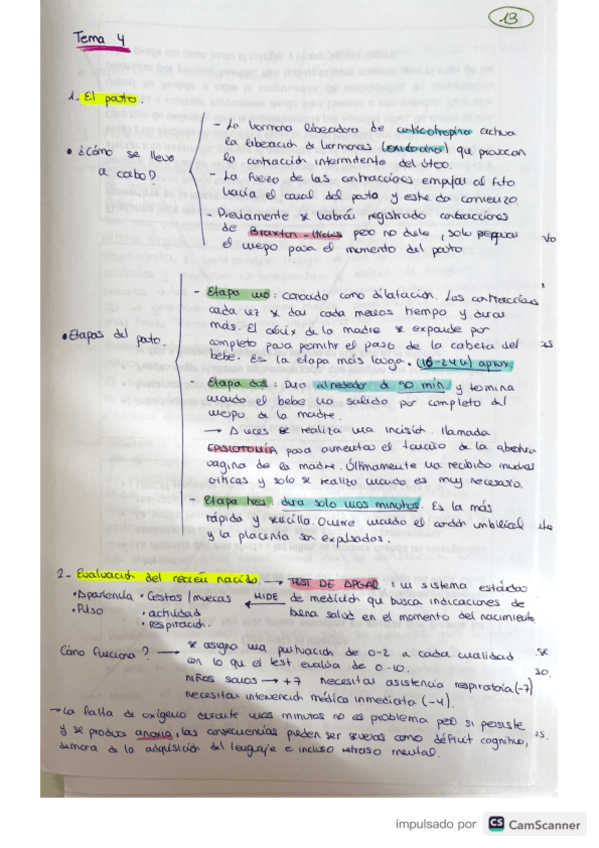 13
Tema 4
1. El parto.
• ¿Cómo se lleva a cabo?
- La hormona liberadora de anticotropina activa
la liberación de hormonas (oxitocina) que provocan
la contracción intermitente del útero.
- La fuerza de las contracciones empujan al feto
hacia el canal del parto y este da comienzo.
- Previamente se habrán registrado contracciones
de Braxton-Hicks pero no duele, solo preparan
el cuerpo para el momento del parto.
• Etapas del parto.
- Etapa uno: conocido como dilatación. Las contracciones
cada vez se dan cada menos tiempo y duran
más. El cérvix de la madre se expande por
completo para permitir el paso de la cabeza del
bebé. Es la etapa más larga. (16-24h) aprox
- Etapa dos: Dura alrededor de 90 min. y termina
cuando el bebé ha salido por completo del
cuerpo de la madre.
→ A veces se realiza una incisión llamada
EPISIOTOMÍA para aumentar el tamaño de la abertura
vagina de la madre. Últimamente ha recibido muchas
críticas y solo se realiza cuando es muy necesario.
- Etapa tres: dura solo unos minutos. Es la más
rápida y sencilla. Ocurre cuando el cordón umbilical
y la placenta son expulsados.
2- Evaluación del recién nacido. → TEST DE APGAR: un sistema estándar
• Apariencia • Gestos/muecas ← MIDE de medición que busca indicaciones de
• Pulso • actividad buena salud en el momento del nacimiento.
• respiración.
Cómo funciona? → se asigna una puntuación de 0-2 a cada cualidad
con lo que el test evalúa de 0-10.
niños sanos → +7 necesitan asistencia respiratoria (-7)
necesitan intervención médica inmediata (-4).
→ La falta de oxígeno durante unos minutos no es problema pero si persiste
y se produce anoxia, las consecuencias pueden ser graves como déficit cognitivo,
demora de la adquisición del lenguaje e incluso retraso mental.
impulsado por CS CamScanner